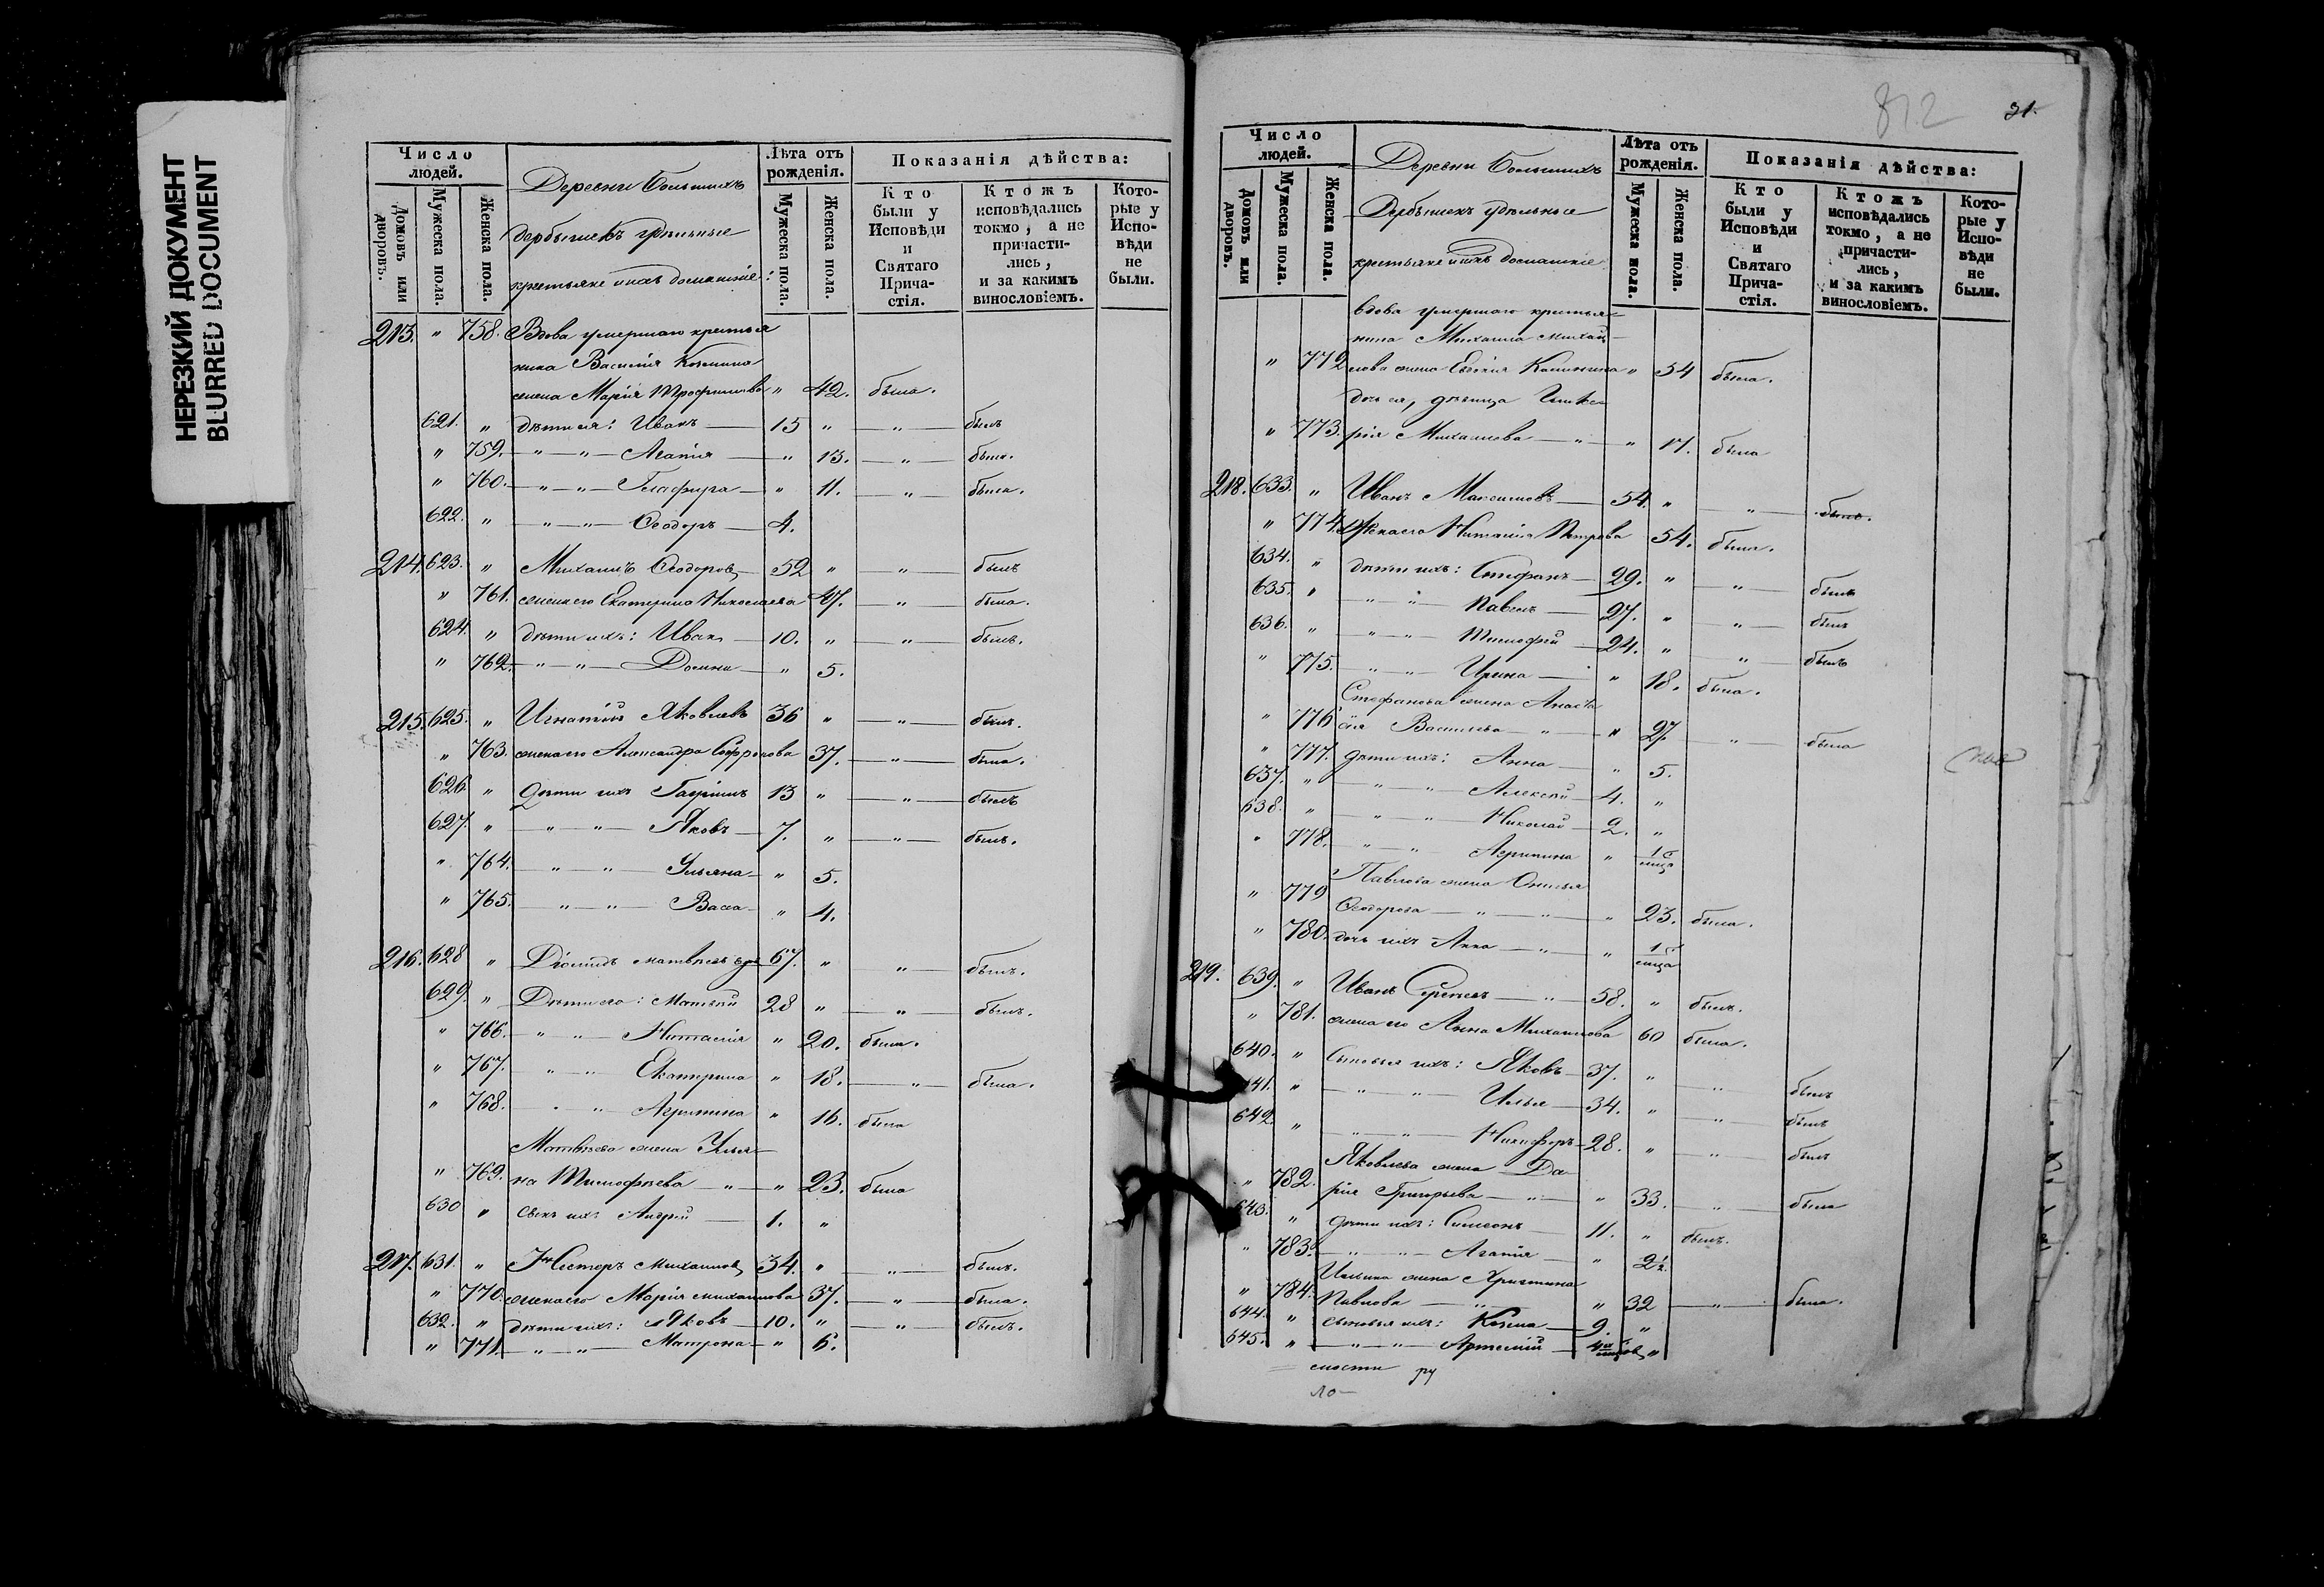 НЕРЕЗКИЙ ДОКУМЕНТ
BLURRED DOCUMENT
Число людей.
Домовъ или дворовъ.
Мужеска пола.
Женска пола.
Деревни Большихъ
Дербышекъ удѣльные
крестьяне и ихъ домашніе:
Лѣта отъ рожденія.
Мужеска пола.
Женска пола.
Показанія дѣйства:
Кто были у Исповѣди и Святаго Прича-стія.
Ктожъ исповѣдались токмо, а не причасти-лись, и за какимъ винословіемъ.
Кото-рые у Испо-вѣди не были.
213. " 758. Вдова умершаго крестья
нина Василія Козмина
жена Марія Трофимова " 42. была.
621. " дѣти ея: Иванъ — 15 " — " — былъ
" 759. — " — " — Агапія — " 13. — " — была.
" 760. — " — " — Глафира — " 11. — " — была.
622. " — " — " — Ѳеодоръ — 4.
214. 623. " Михаилъ Ѳеодоровъ — 52 " — " — былъ
" 761. жена его Екатерина Николаева 47. — " — была.
624. " дѣти ихъ: Иванъ — 10. " — " — былъ.
" 762. — " — " — Домна — " 5.
215. 625. " Игнатій Яковлевъ 36 " — " — былъ.
" 763. жена его Александра Софронова 37. — " — была.
626. " дѣти ихъ Гавріилъ 13 " — " — былъ
627. " — " — " — Яковъ — 7. " — " — былъ.
" 764. — " — " — Ульяна — " 5.
" 765. — " — " — Васса — " 4.
216. 628 " Діомидъ Матвѣевъ вд. 67. " — " — былъ.
629. " Дѣти его: Матвѣй 28 " — " — былъ.
" 766. — " — " — Наталія " 20. была.
" 767. — " — " — Екатерина " 18. — " — была.
" 768. — " — " — Агрипина " 16. была
Матвѣева жена Улья-
" 769. на Тимофѣева — " — " 23. была
630 " сынъ ихъ Андрей — 1. "
217. 631. " Несторъ Михаиловъ 34. " — " — былъ.
" 770. жена его Марія Михаилова 37. — " — была.
632. " дѣти ихъ: Яковъ — 10. " — " — былъ.
" 771. — " — " — Матрона — " 6.
812
31.
Число людей.
Домовъ или дворовъ.
Мужеска пола.
Женска пола.
Деревни Большихъ
Дербышекъ удѣльные
крестьяне и ихъ домашніе
Лѣта отъ рожденія.
Мужеска пола.
Женска пола.
Показанія дѣйства:
Кто были у Исповѣди и Святаго Прича-стія.
Ктожъ исповѣдались токмо, а не причасти-лись, и за какимъ винословіемъ.
Кото-рые у Испо-вѣди не были.
вдова умершаго крестья-
нина Михаила Михай-
" 772 лова жена Евдокія Калинина " 54 была.
дочь ея, дѣвица Глике-
" 773. рія Михаилова — " — " 17. была
218. 633. " Иванъ Максимовъ — 54. " — " — былъ.
" 774. Жена его Наталія Петрова 54. была.
634. " дѣти ихъ: Стефанъ — 29. " — " — былъ
635. " — " — " — Павелъ — 27. " — " — былъ
636. " — " — " — Тимофей — 24. " — " — былъ
" 775. — " — " — Ирина — " 18. была.
Стефанова жена Анаста
" 776 сія Васильева — " — " 27 — " — была
" 777. дѣти ихъ: Анна — " 5.
637. " — " — " — Алексѣй — 4. "
638. " — " — " — Николай — 2. "
" 778. — " — " — Агрипина " 1 мца
Павлова жена Онисья
" 779 Ѳеодорова — " — " — " 23. была.
" 780. дочь ихъ Анна — " — " 1 мца
219. 639. " Иванъ Сергѣевъ — " — 58. " былъ.
" 781. жена его Анна Михаилова 60 была.
640. " Сыновья ихъ: Яковъ — 37. " — " — былъ
641. " — " — " — Илья — 34. " — " — былъ
642. " — " — " — Никифоръ — 28. " — " — былъ
Яковлева жена Да-
" 782. рія Григорьева — " — " 33. — " — была
643. " дѣти ихъ: Симеонъ — 11. " былъ.
" 783. — " — " — Агапія — " 2½.
Ильина жена Христина
" 784. Павлова — " — " 32 — " — была.
644. " сыновья ихъ: Козма — 9. "
645. " — " — " — Артемій — 4 мцов. "
ру
ло-